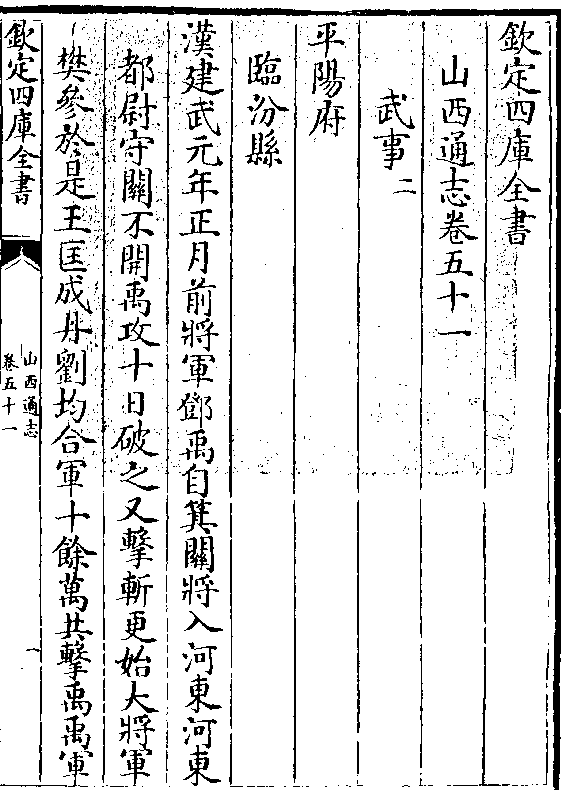 欽定四庫全書
山西通志卷五十一
武事二
平陽府
臨汾縣
漢建武元年正月前將軍鄧禹自箕關將入河東河東
都尉守關不開禹攻十日破之又擊斬更始大將軍
樊參於是王匡成丹劉均合軍十餘萬共擊禹禹軍
欽定四庫全書
山西通志
卷五十一
一